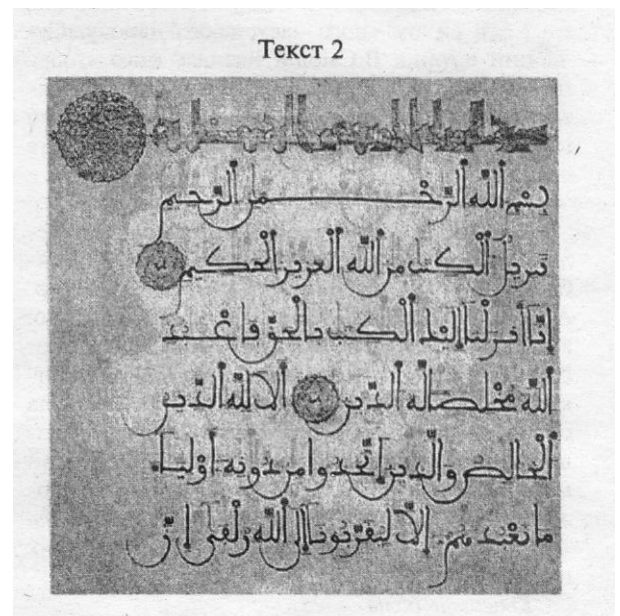 Текст 2
بسم الله الرحمن الرحيم
تنزيل الكتب من الله العزيز الحكيم
إنا أنزلنا إليك الكتب بالحق فاعبد
الله مخلصا له الدين ألا لله الدين
الخالص والذين اتخذوا من دونه أولياء
ما نعبدهم إلا ليقربونا إلى الله زلفى إن